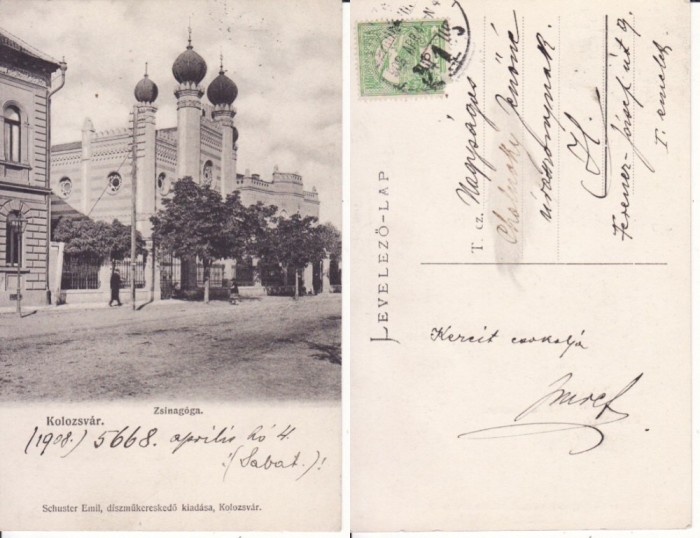 Zsinagóga.
Kolozsvár.
(1908.) 5668. április hó 4.
(Sabat.)!
Schuster Emil, díszműkereskedő kiadása, Kolozsvár.
LEVELEZŐ-LAP
T. cz. Nagyságos
Jenőné
úrasszonynak.
Ferencz József út 9.
I. emelet
Kezeit csókolja